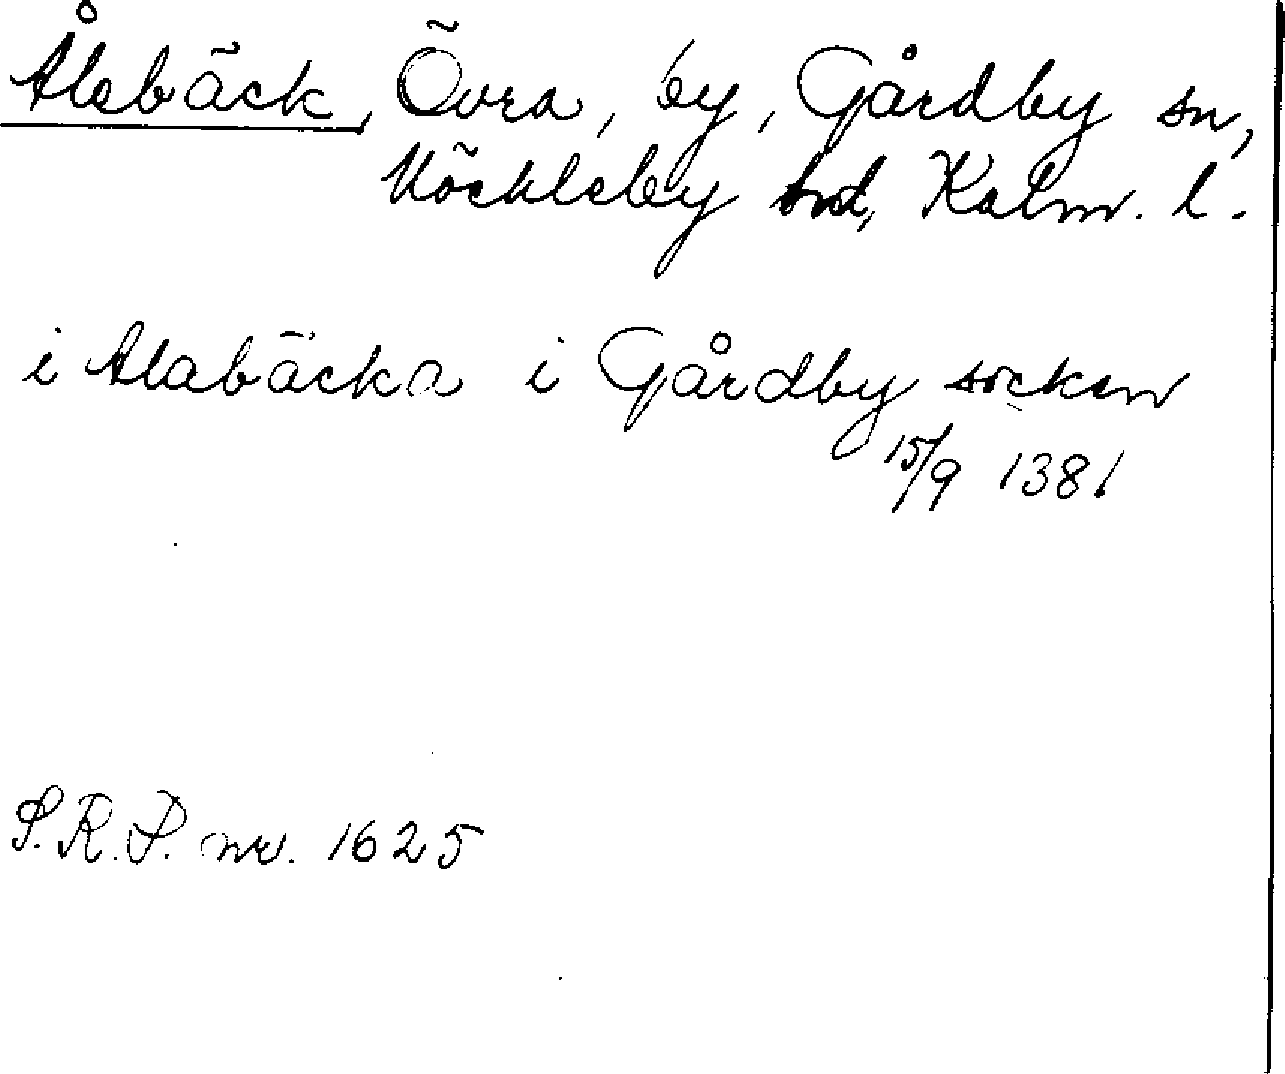 Ålebäck, Övra, by, Gårdby sn,
Möckleby hd, Kalm. l.
i Alabäcka i Gårdby socken
15/9 1381
S.R.P. nr. 1625